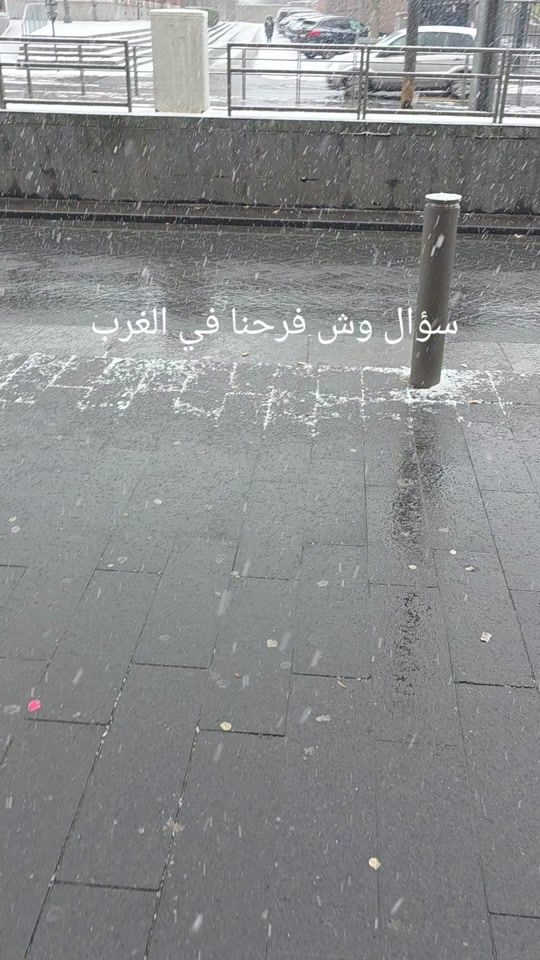 سؤال وش فرحنا في الغرب